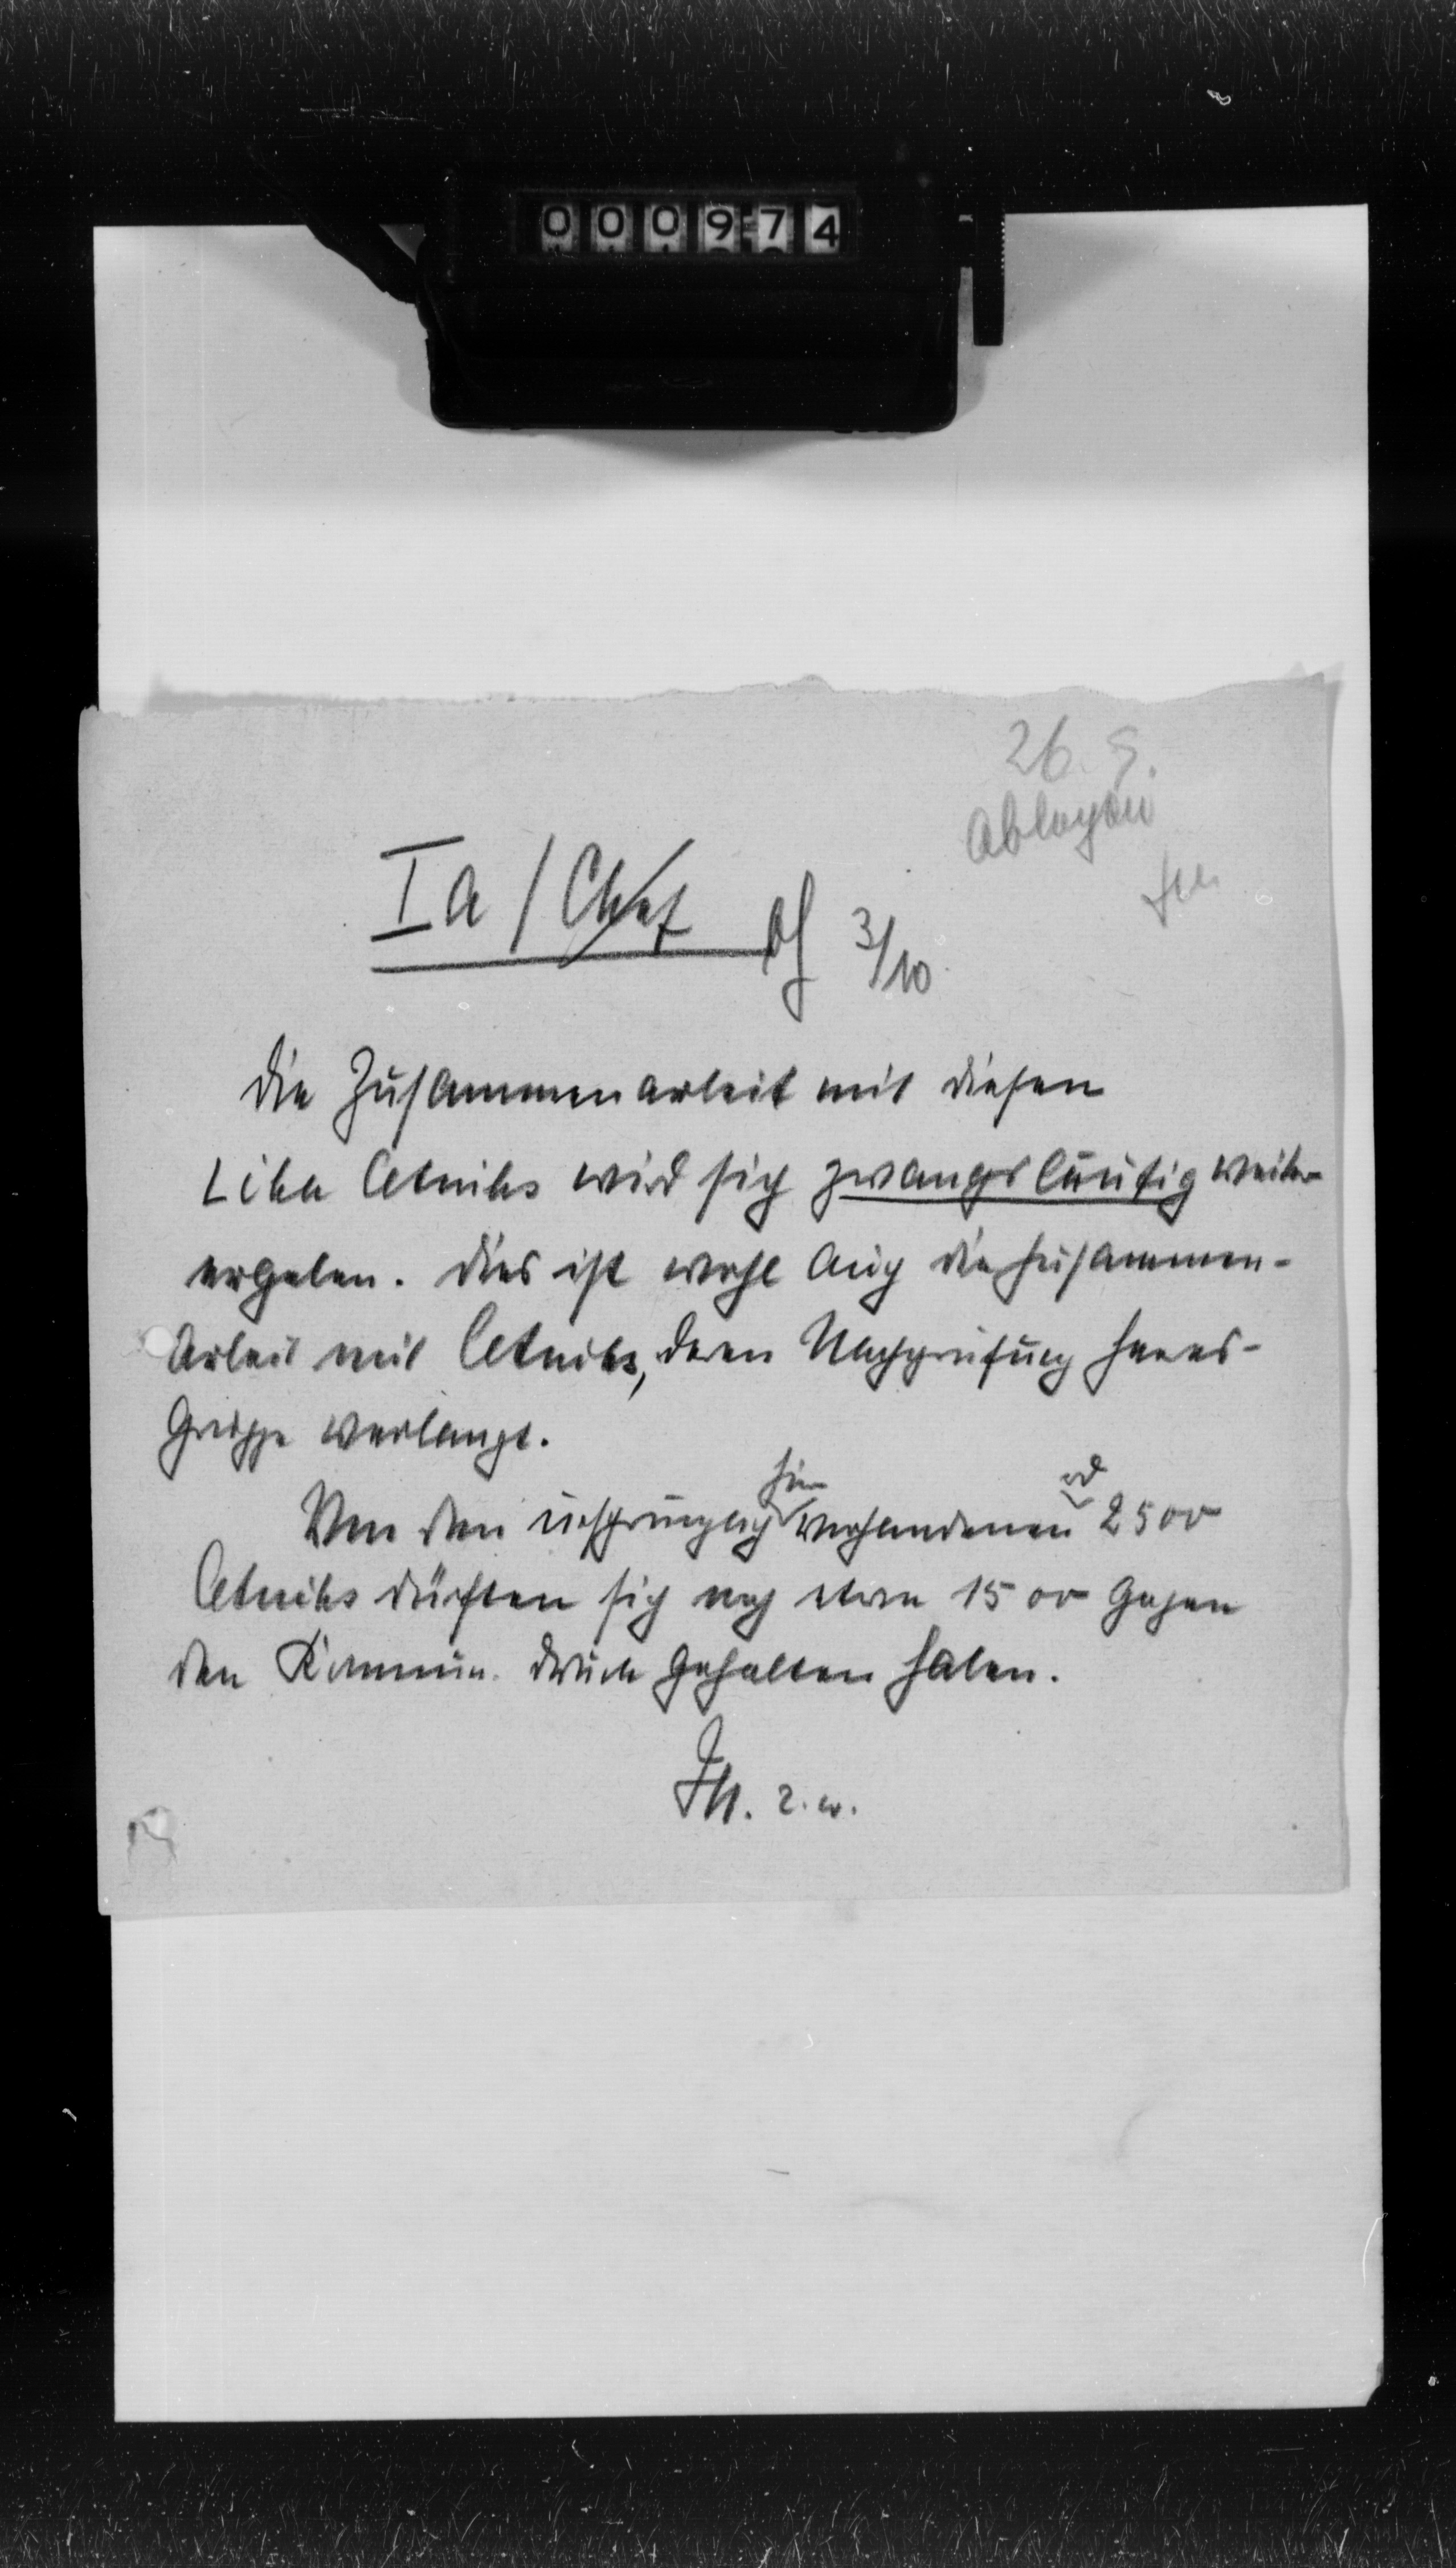 000974
26.9.
Ablegen
Ia / Chef 3/10
Die Zusammenarbeit mit diesen
Lika Cetniks wird sich zwangsläufig weiter
ergeben. Dies ist wohl auch die Zusammen-
arbeit mit Cetniks, deren Nachprüfung Heeres-
Gruppe verlangt.
Von den ursprünglich hier vorhandenen 2500
Cetniks dürften sich noch etwa 1500 gegen
den Kommun. Druck gehalten haben.